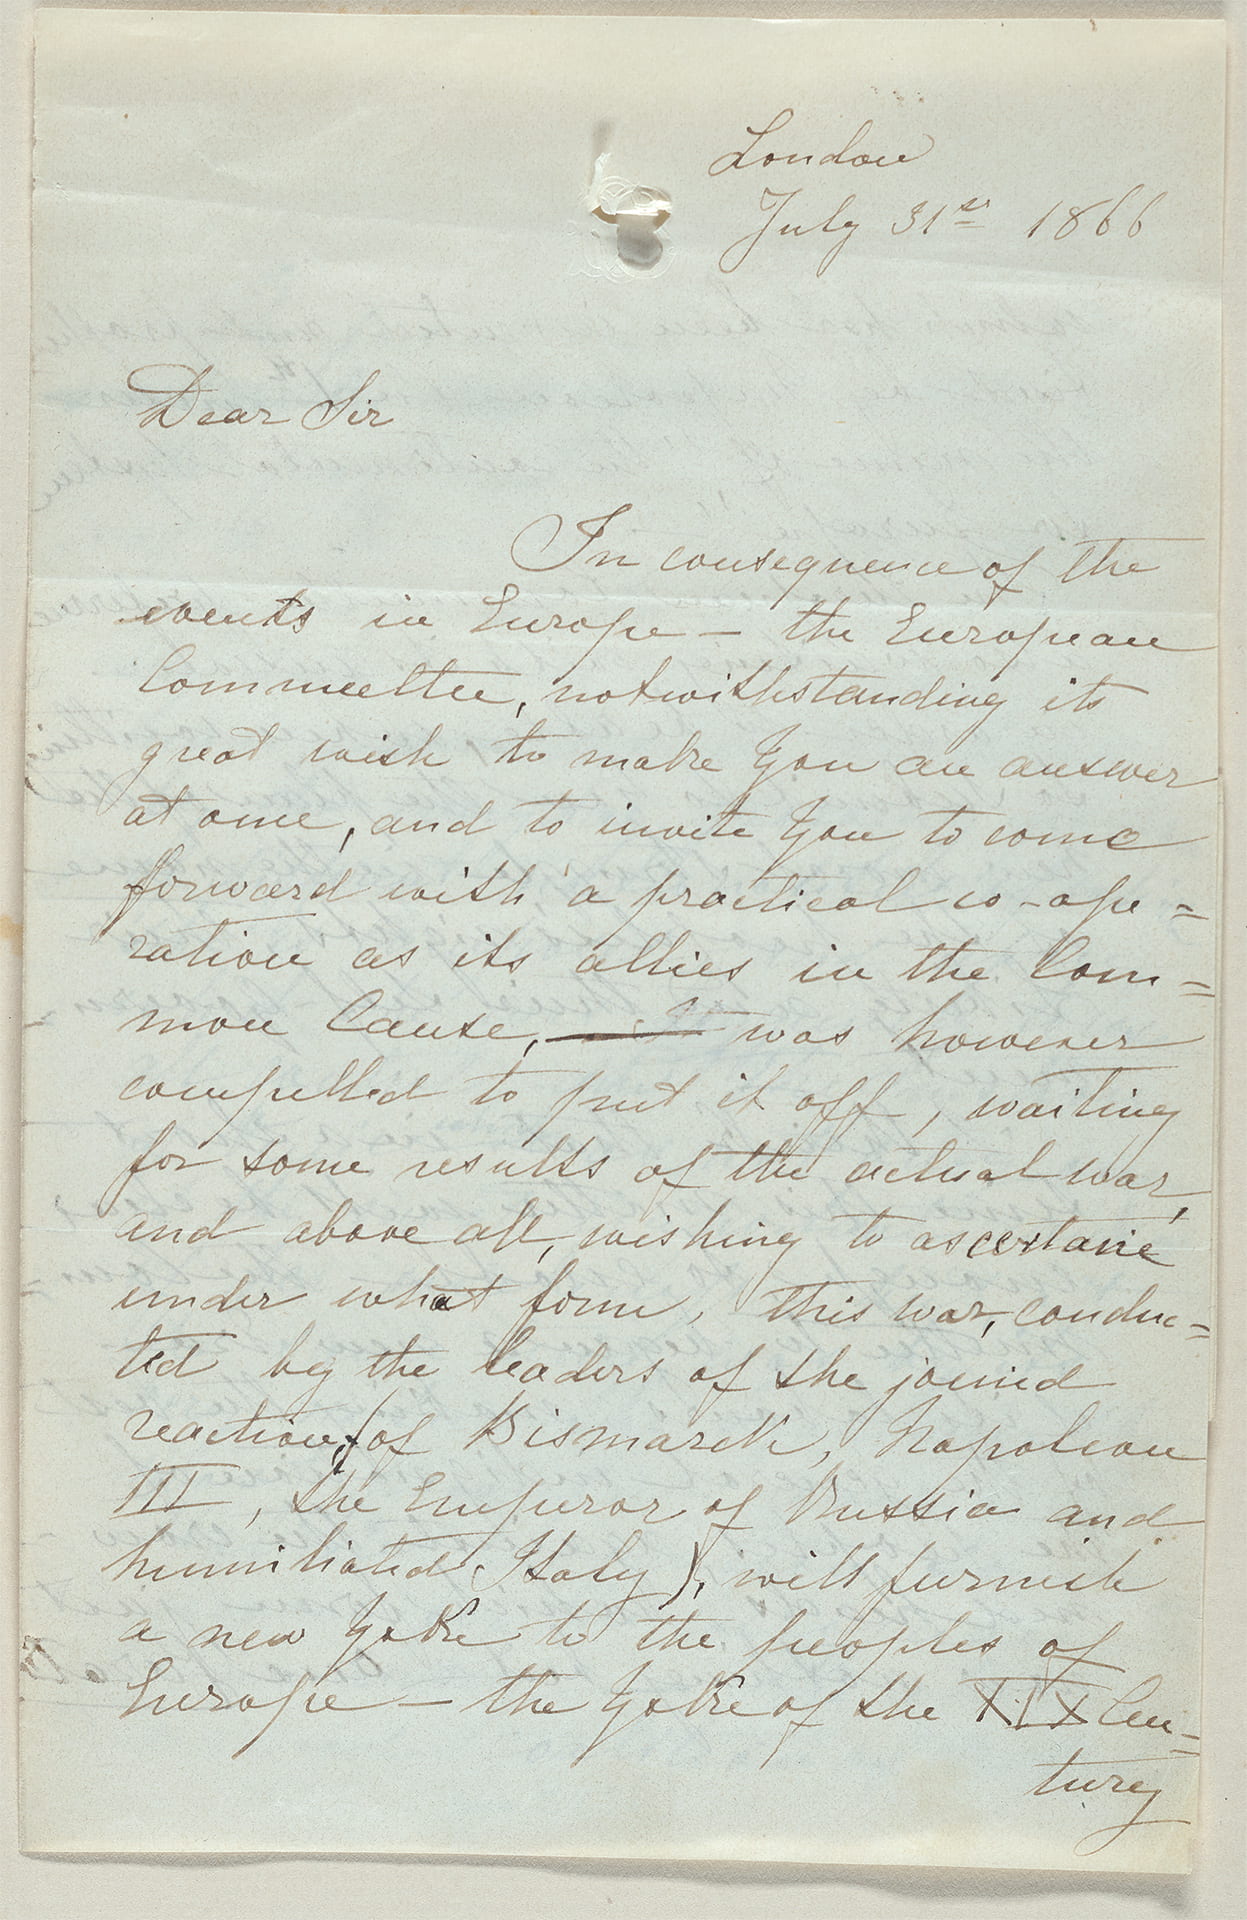 London
July 31st 1866
Dear Sir
In consequence of the
events in Europe — the European
Committee, notwithstanding its
great wish to make You an answer
at once, and to invite You to come
forward with a practical co-ope=
ration as its allies in the Com=
mon Cause, was however
compelled to put it off, waiting
for some results of the actual war,
and above all, wishing to ascertain
under what form, this war, conduc=
ted by the leaders of the joined
reaction, (of Bismarck, Napoleon
III, the Emperor of Russia and
humiliated Italy), will furnish
a new Yoke to the peoples of
Europe — the Yoke of the XIX Cen=
tury